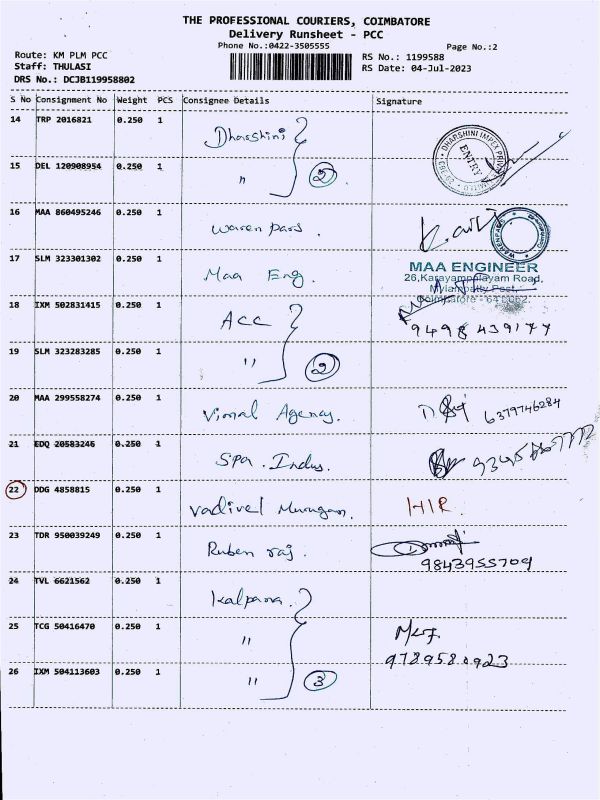 THE PROFESSIONAL COURIERS, COIMBATORE
Delivery Runsheet - PCC
Phone No.:0422-3505555
Page No.:2
Route: KM PLM PCC
Staff: THULASI
DRS No.: DCJB119958802
RS No.: 1199588
RS Date: 04-Jul-2023
S No Consignment No Weight PCS Consignee Details Signature
14 TRP 2016821 0.250 1 Dharshini
DHARSHINI IMPEX
ENTRY
15 DEL 120908954 0.250 1 " 2
16 MAA 860495246 0.250 1 Waren pars.
17 SLM 323301302 0.250 1 Maa Eng.
MAA ENGINEER
26,Karayampalayam Road,
Mylampatty Post,
Coimbatore - 641 062.
18 IXM 502831415 0.250 1 ACC
9498 439177
19 SLM 323283285 0.250 1 " 2
20 MAA 299558274 0.250 1 Vimal Agency. 6379746284
21 EDQ 20583246 0.250 1 Spa. Indus.
22 DDG 4858815 0.250 1 Vadivel Murugan. HIR
23 TDR 950039249 0.250 1 Ruben raj.
9843955709
24 TVL 6621562 0.250 1 Kalpana.
25 TCG 50416470 0.250 1 "
9789580923
26 IXM 504113603 0.250 1 " 3